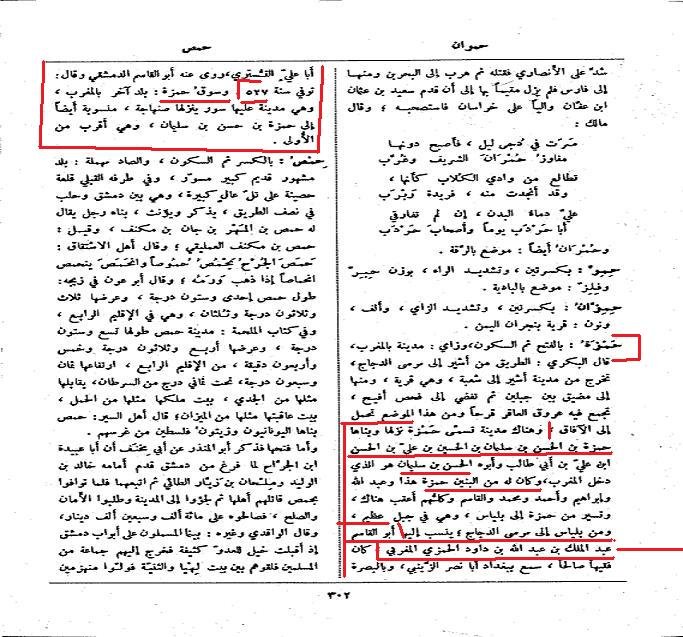 حمران
حمص
شدّ على الأنصاري فقتله ثم هرب إلى البحرين ومنها
إلى فارس فلم يزل مقيماً بها إلى أن قدم سعيد بن عثمان
ابن عفان والياً على خراسان فاستصحبه ؛ وقال
مالك :
سَرَت في دُجى ليل ، فأصبح دونها
مفاوز حُمْرَان الشريف وغُرّب
تطالع من وادي الكلاب كأنها ،
وقد أنجدت منه ، فريدة رَبْرَب
عليّ دماء البدن ، إن لم تفارقي
أبا حَردَب يوماً وأصحاب حَردَب
وحُمْران أيضاً : موضع بالرقّة .
حِمِرّ : بكسرتين ، وتشديد الراء ، بوزن حِبِرّ
وفلِزّ : موضع بالبادية .
حِمِزّان : بكسرتين ، وتشديد الزاي ، وألف ،
ونون : قرية بنجران اليمن .
حَمْزَة : بالفتح ثم السكون ، وزاي : مدينة بالمغرب ،
قال البكري : الطريق من أشير إلى مرسى الدجاج ،
تخرج من مدينة أشير إلى شعبة ، وهي قرية ، ومنها
إلى مضيق بين جبلين ثم تفضي إلى فحص أفيح ،
تجمع فيه عروق العاقر قرحاً ومن هذا الموضع تحمل
إلى الآفاق ، وهناك مدينة تسمّى حَمْزة نزلها وبناها
حمزة بن الحسن بن سليمان بن الحسين بن عليّ بن الحسن
ابن عليّ بن أبي طالب وأبوه الحسن بن سليمان هو الذي
دخل المغرب ، وكان له من البنين حمزة هذا وعبد الله
وإبراهيم وأحمد ومحمد والقاسم وكلهم أعقب هناك ،
وتسير من حمزة إلى بلياس ، وهي في جبل عظيم ،
ومن بلياس إلى مرسى الدجاج ؛ ينسب إليها أبو القاسم
عبد الملك بن عبد الله بن داود الحمزي المغربي ، كان
فقيهاً صالحاً ، سمع ببغداد أبا نصر الزينبي ، وبالبصرة
أبا عليّ التُّستري ، روى عنه أبو القاسم الدمشقي وقال :
توفي سنة ٥٢٧ . وسوقُ حمزة : بلد آخر بالمغرب ،
وهي مدينة عليها سور ينزلها صنهاجة ، منسوبة أيضاً
إلى حمزة بن حسن بن سليمان ، وهي أقرب من
الأولى .
حِمْصُ : بالكسر ثم السكون ، والصاد مهملة : بلد
مشهور قديم كبير مسوّر ، وفي طرفه القبلي قلعة
حصينة على تلّ عال كبيرة ، وهي بين دمشق وحلب
في نصف الطريق ، يذكر ويؤنث ، بناه رجل يقال
له حمص بن المَهْر بن جان بن مكنف ، وقيل :
حمص بن مكنف العمليقي ؛ وقال أهل الاشتقاق :
حَمَصَ الجُرْحُ يَحْمُصُ حُمُوصاً وانْحَمَصَ ينحمص
انحماصاً إذا ذهب وَرَمُهُ ؛ وقال أبو عون في زيجه :
طول حمص إحدى وستون درجة ، وعرضها ثلاث
وثلاثون درجة وثلثان ، وهي في الإقليم الرابع ،
وفي كتاب الملحمة : مدينة حمص طولها تسع وستون
درجة ، وعرضها أربع وثلاثون درجة وخمس
وأربعون دقيقة ، من الإقليم الرابع ، ارتفاعها ثمان
وسبعون درجة، تحت ثماني درج من السرطان، يقابلها
مثلها من الجدي ، بيت ملكها مثلها من الحمل ،
بيت عاقبتها مثلها من الميزان ؛ قال أهل السير : حمص
بناها اليونانيون وزيتون فلسطين من غرسهم .
وأما فتحها فذكر أبو المنذر عن أبي مخنف أن أبا عبيدة
ابن الجرّاح لما فرغ من دمشق قدم أمامه خالد بن
الوليد وملحان بن زيار الطائي ثم اتبعهما فلما توافوا
بحمص قاتلهم أهلها ثم لجؤوا إلى المدينة وطلبوا الأمان
والصلح ، فصالحوه على مائة ألف وسبعين ألف دينار،
وقال الواقدي وغيره : بينما المسلمون على أبواب دمشق
إذ أقبلت خيل للعدو كثيفة فخرج إليهم جماعة من
المسلمين فلقوهم بين بيت لهيا والثنية فولّوا منهزمين
٣٠٢